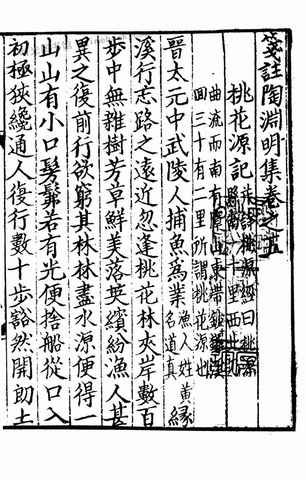 箋註陶淵明集卷之五
桃花源記
曲流而南有
回三十有二里所謂桃花源也
晉太元中武陵人捕魚為業漁人姓黃名道真緣
溪行忘路之遠近忽逢桃花林夾岸數百
步中無雜樹芳草鮮美落英繽紛漁人甚
異之復前行欲窮其林林盡水源便得一
山山有小口髣髴若有光便捨船從口入
初極狹纔通人復行數十步豁然開朗土